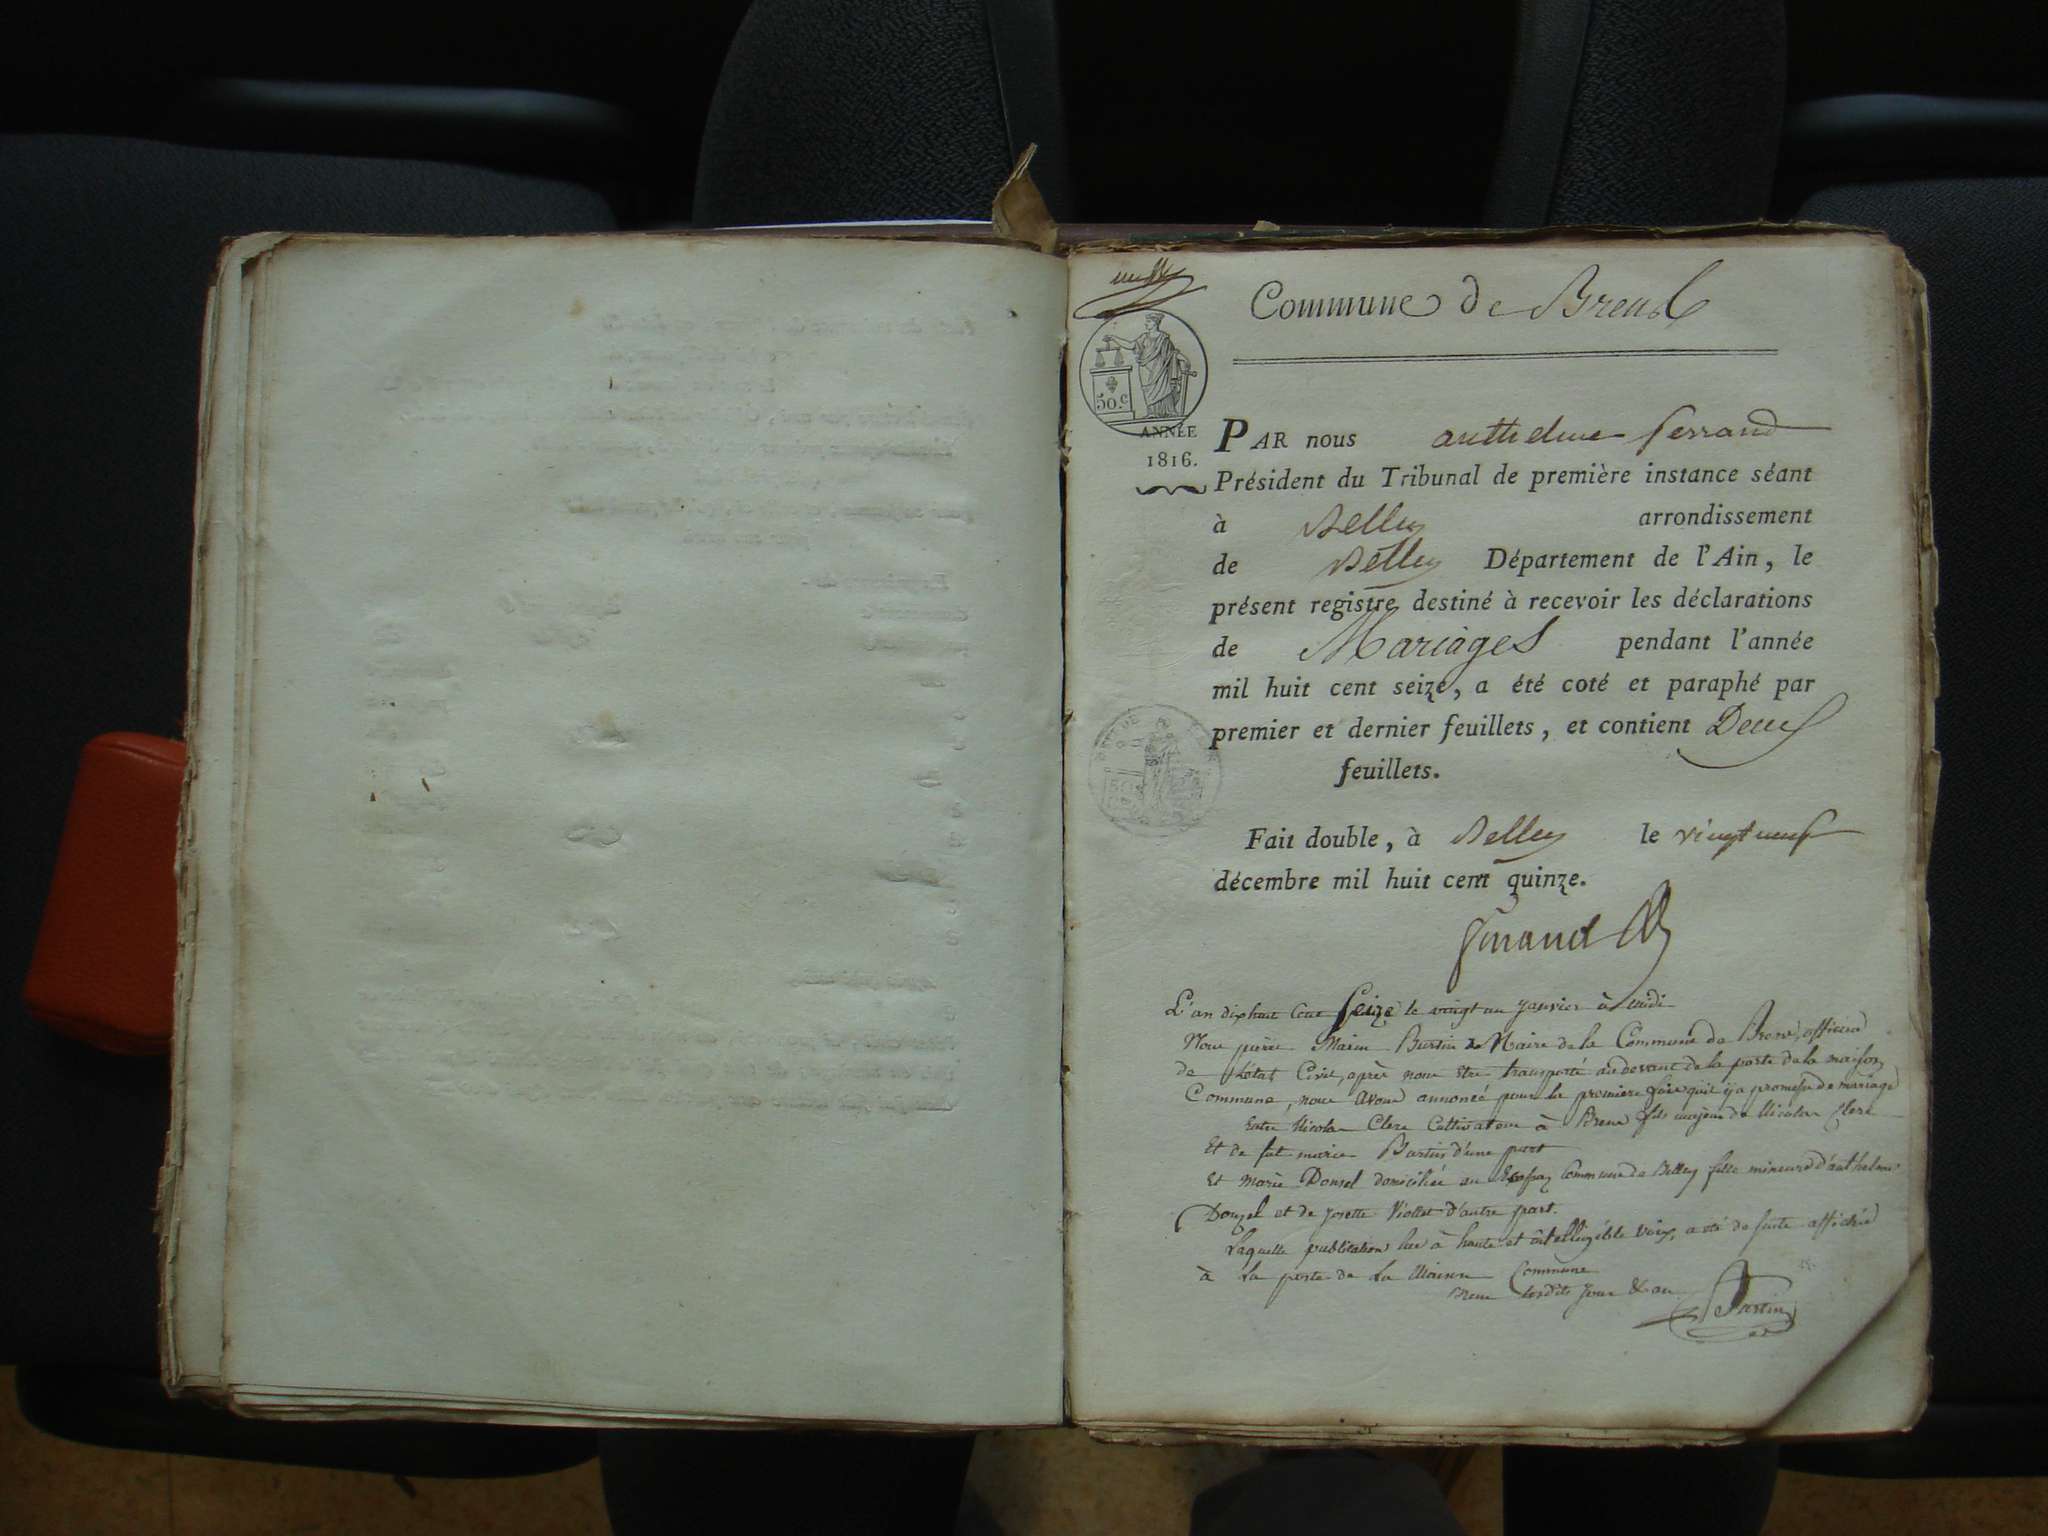 Commune de Brens
50.c
ANNÉE
1816.
PAR nous anthelme ferrand
Président du Tribunal de première instance séant
à Belley arrondissement
de Belley Département de l'Ain, le
présent registre destiné à recevoir les déclarations
de Mariages pendant l'année
mil huit cent seize, a été coté et paraphé par
premier et dernier feuillets, et contient Deux
feuillets.
Fait double, à Belley le vingt neuf
décembre mil huit cent quinze.
L'an dix huit cent Seize le vingt un janvier à midi
Nous Burtin Maire de la Commune de Brens, officier
de l'état Civil, après nous être transporté au devant de la porte de la maison
Commune, nous avons annoncé pour la premiere fois qu'il y a promesse de mariage
Entre Nicolas Clerc Cultivateur à Brens fils majeur de Nicolas Clerc
Et de fut marie Burtin d'une part
Et Marie Donzel domiciliée au Commune de Belley fille mineure d'anthelme
Donzel et de josette Viollet d'autre part.
Laquelle publication lue à haute et intelligible voix, a été de suite affichée
à la porte de La Maison Commune
Brens lesdits jour & an
Burtin